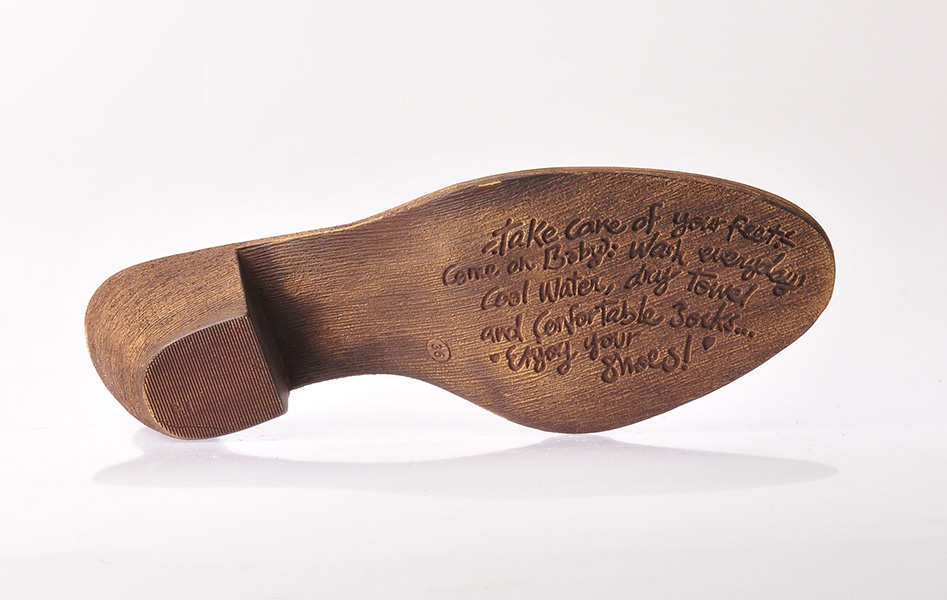 Take care of your feet:
Come on Baby: Wash everyday,
Cool Water, dry Towel
and Confortable Socks...
"Enjoy your
shoes!"
38